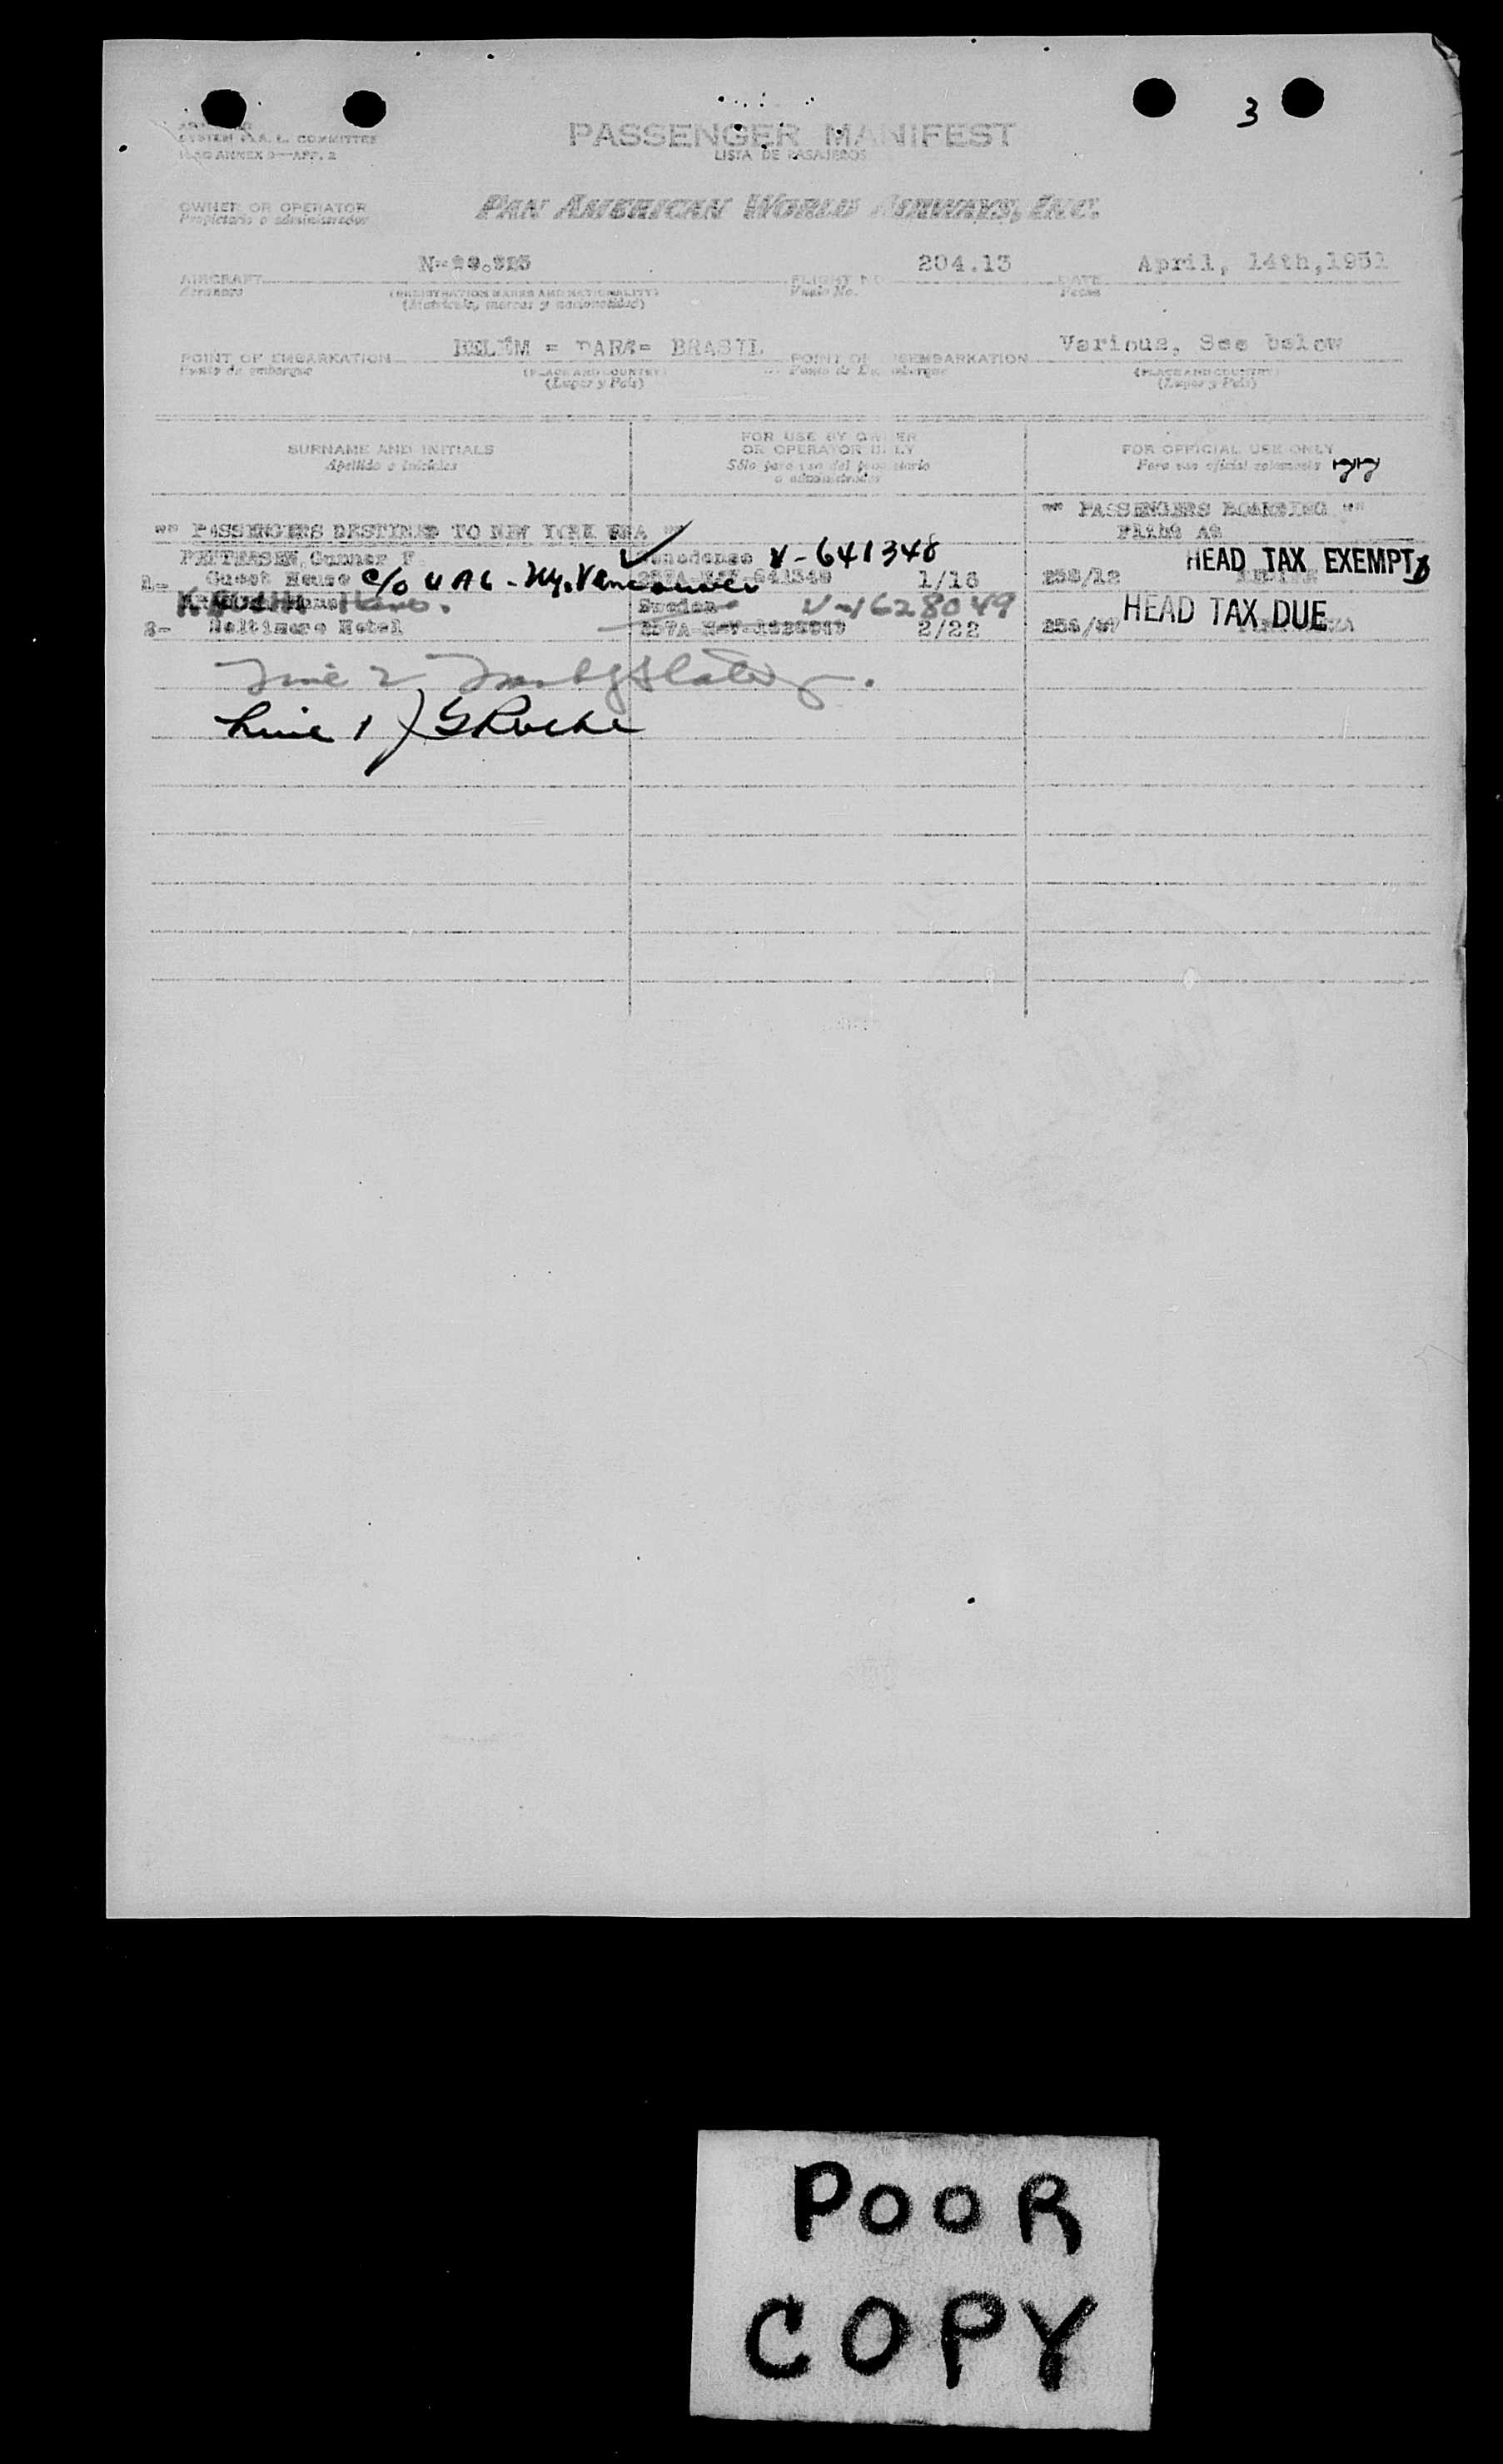 3
SYSTEM P.A.L. COMMITTEE
ANNEX 9—APP. 2
PASSENGER MANIFEST
LISTA DE PASAJEROS
OWNER OR OPERATOR
Propietario o administrador
PAN AMERICAN WORLD AIRWAYS, INC.
AIRCRAFT
Aeronave
(REGISTRATION MARKS AND NATIONALITY)
(Matrícula, marcas y nacionalidad)
FLIGHT NO. 204.13
Vuelo No.
DATE April, 14th, 1951
Fecha
POINT OF EMBARKATION BELÉM = PARÁ= BRASIL
Punto de embarque
(PLACE AND COUNTRY)
(Lugar y País)
POINT OF DISEMBARKATION Various, See below
(PLACE AND COUNTRY)
(Lugar y País)
SURNAME AND INITIALS
Apellido e iniciales
FOR USE BY OWNER
OR OPERATOR ONLY
Sólo para uso del propietario
o administrador
FOR OFFICIAL USE ONLY
Para uso oficial solamente
"" PASSENGERS DESTINED TO NEW YORK ""
"" PASSENGERS BOARDING ""
Gunnar F. V-641348
1- Guest House c/o UAL - Ny. Vancouver 1/16 HEAD TAX EXEMPT
Hans. Sweden V-1628049
2- Hotel 2/22 HEAD TAX DUE
Line 2
Line 1) G Roche
POOR
COPY